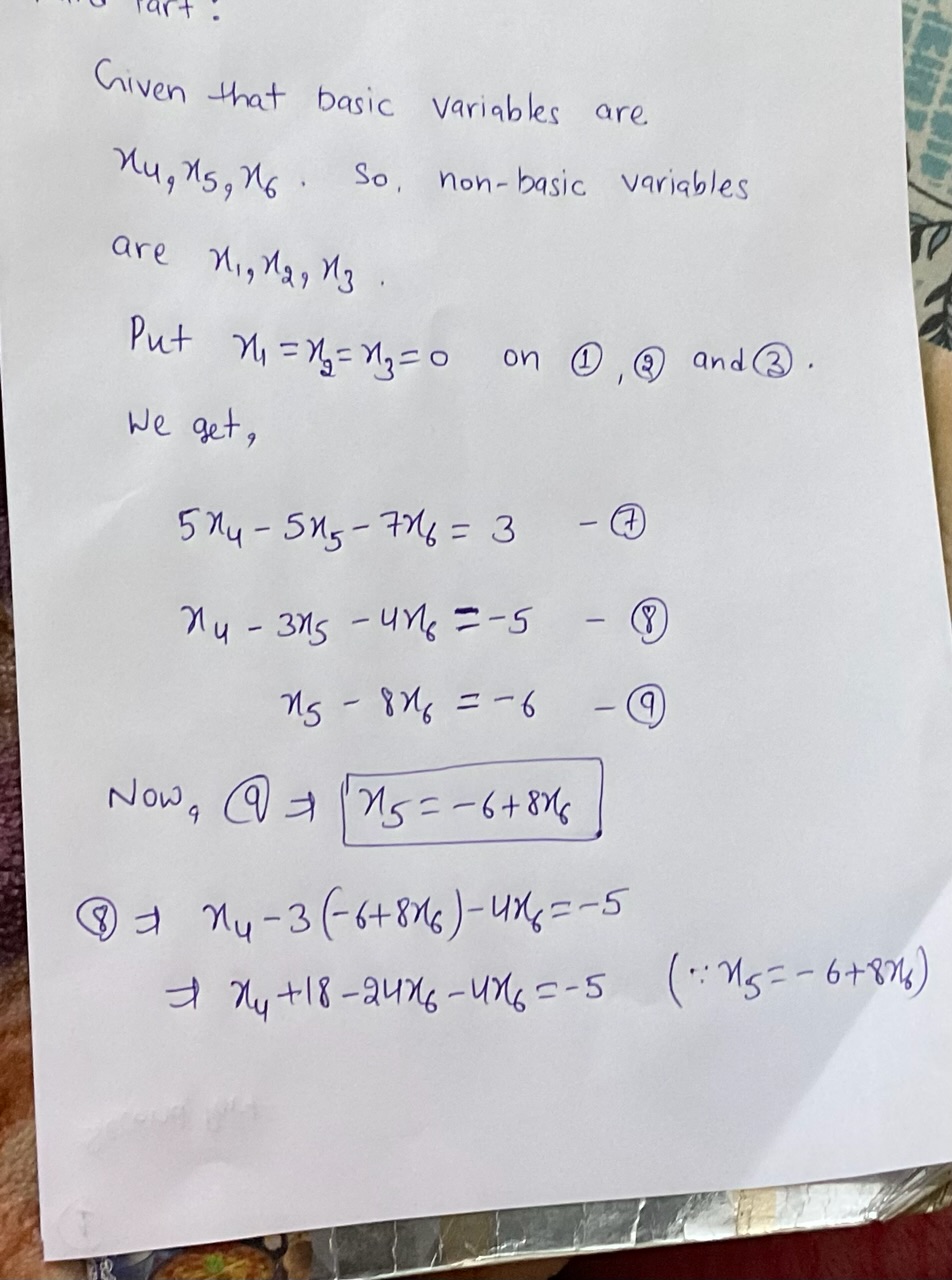 Part :
Given that basic variables are
x₄, x₅, x₆ . So, non-basic variables
are x₁, x₂, x₃ .
Put x₁ = x₂ = x₃ = 0 on ①, ② and ③ .
We get,
5x₄ - 5x₅ - 7x₆ = 3 - ⑦
x₄ - 3x₅ - 4x₆ = -5 - ⑧
x₅ - 8x₆ = -6 - ⑨
Now, ⑨ ⇒ x₅ = -6+8x₆
⑧ ⇒ x₄ - 3(-6+8x₆) - 4x₆ = -5
⇒ x₄ + 18 - 24x₆ - 4x₆ = -5 (∵ x₅ = -6+8x₆)